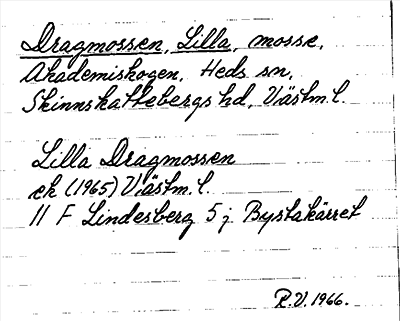 Dragmossen, Lilla, mosse,
Akademiskogen, Heds sn,
Skinnskattebergs hd, Västm. l.
Lilla Dragmossen
ek (1965) Västm. l.
11 F Lindesberg 5 j Bystakärret
R.V. 1966.